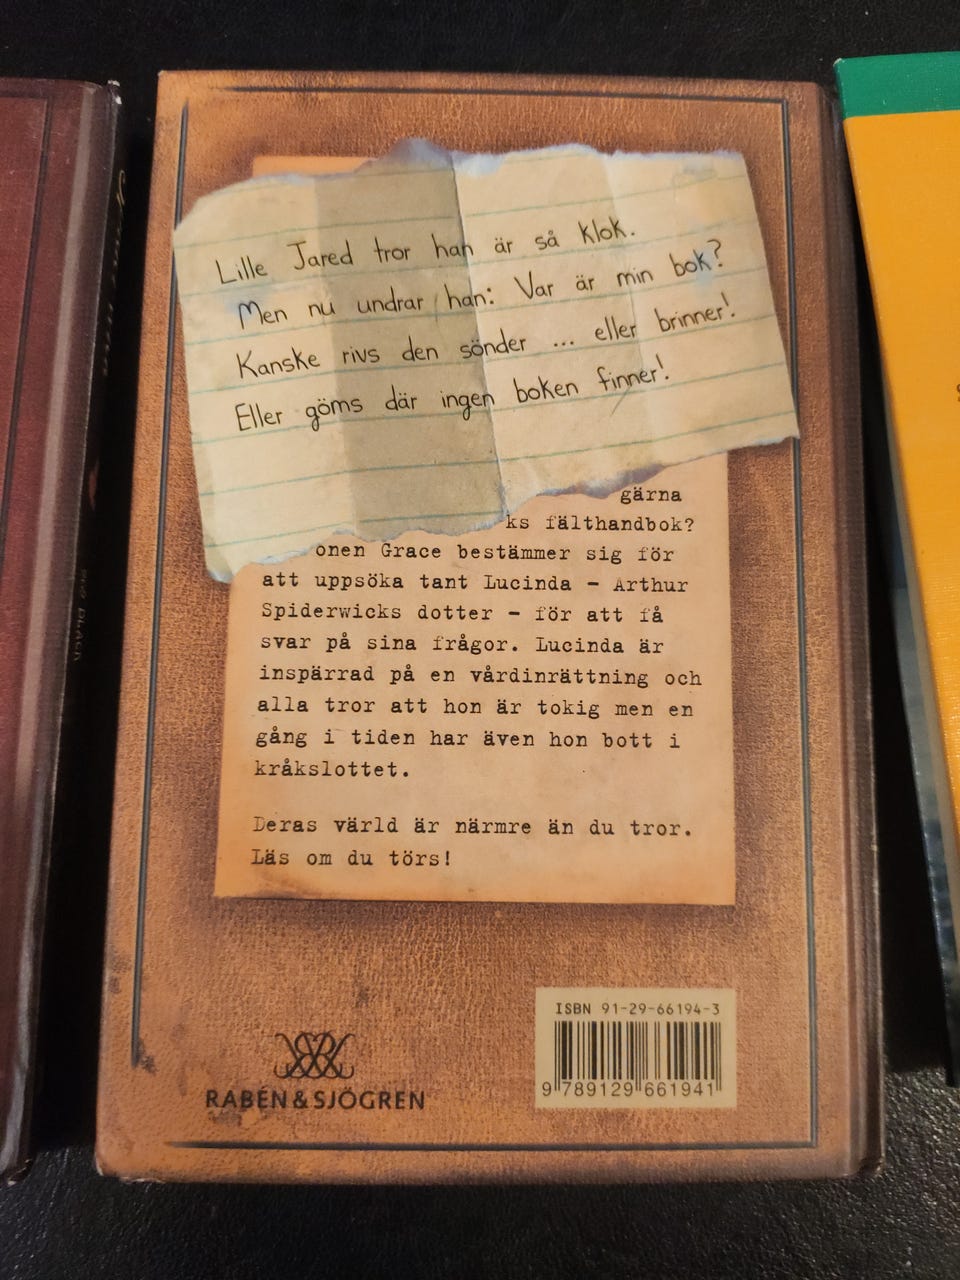 Lille Jared tror han är så klok.
Men nu undrar han: Var är min bok?
Kanske rivs den sönder ... eller brinner!
Eller göms där ingen boken finner!
gärna
ks fälthandbok?
onen Grace bestämmer sig för
att uppsöka tant Lucinda – Arthur
Spiderwicks dotter – för att få
svar på sina frågor. Lucinda är
inspärrad på en vårdinrättning och
alla tror att hon är tokig men en
gång i tiden har även hon bott i
kråkslottet.
Deras värld är närmre än du tror.
Läs om du törs!
RABÉN & SJÖGREN
ISBN 91-29-66194-3
9 789129 661941
BLACK